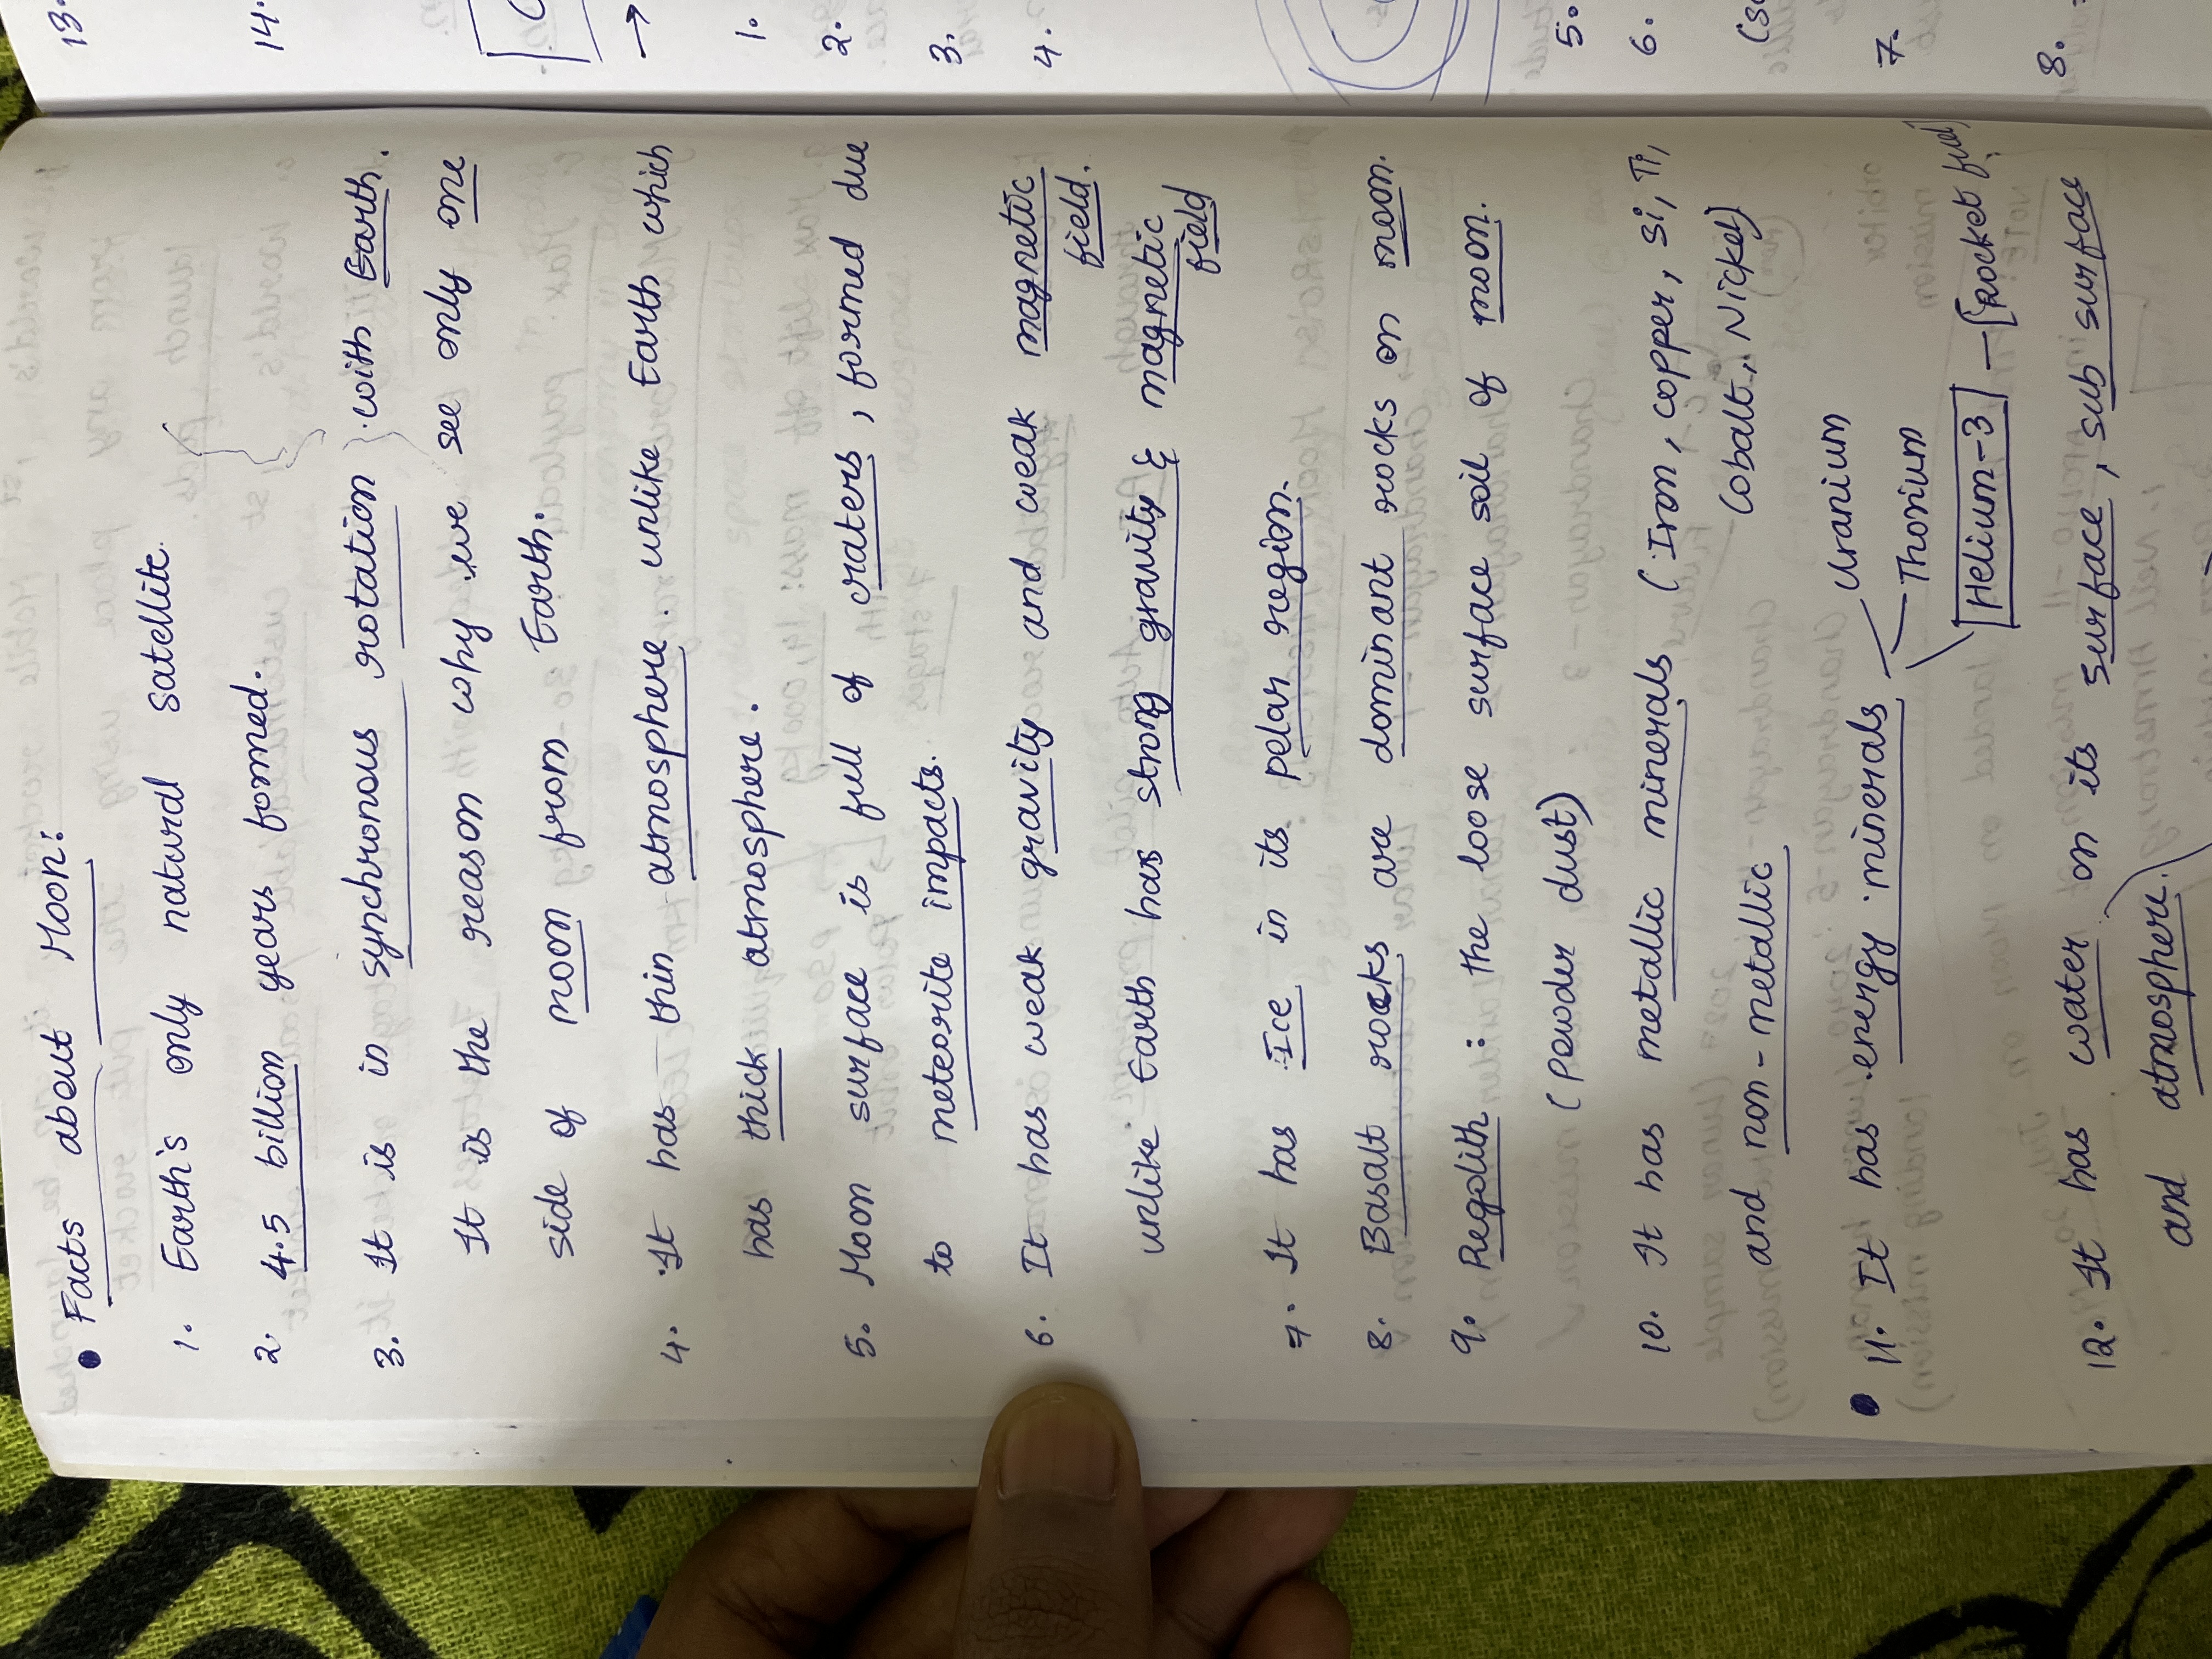 • Facts about Moon:
1. Earth's only natural satellite.
2. 4.5 billion years formed.
3. It is in synchronous rotation with Earth.
It is the reason why we see only one
side of moon from Earth.
4. It has thin atmosphere unlike Earth which
has thick atmosphere.
5. Moon surface is full of craters, formed due
to meteorite impacts.
6. It has weak gravity and weak magnetic
field.
unlike Earth has strong gravity & magnetic
field
7. It has Ice in its polar region.
8. Basalt rocks are dominant rocks on moon.
9. Regolith : the loose surface soil of moon.
(Powder dust)
10. It has metallic minerals (Iron, copper, Si, Ti,
and non-metallic Cobalt, Nickel)
• 11. It has energy minerals Uranium
Thorium
Helium-3 – [Rocket fuel]
12. It has water on its surface, sub surface
and atmosphere.
13.
14.
1.
2.
3.
4.
5.
6.
7.
8.